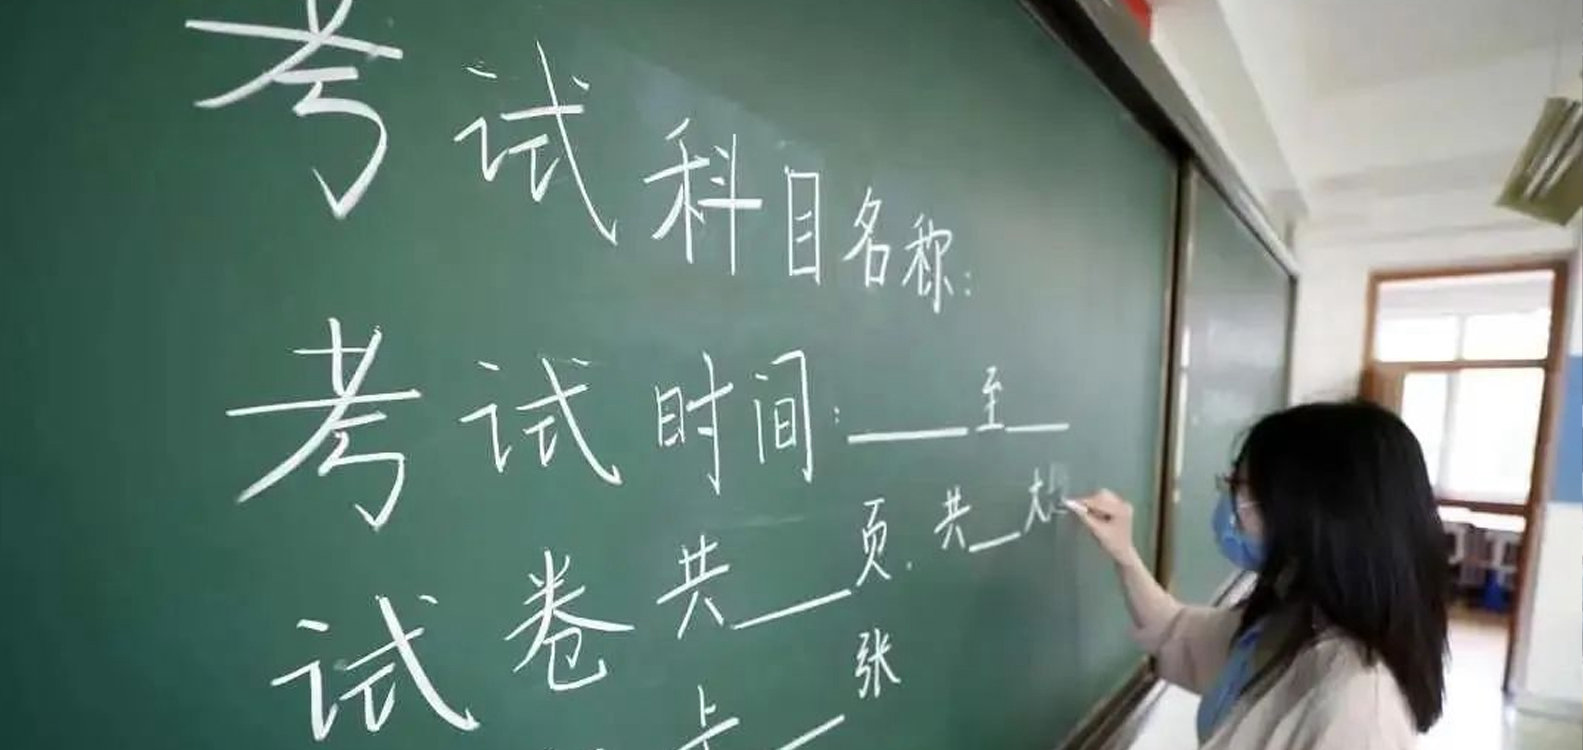 考试科目名称:
考试时间:____至____
试卷共____页,共__大
卡____张